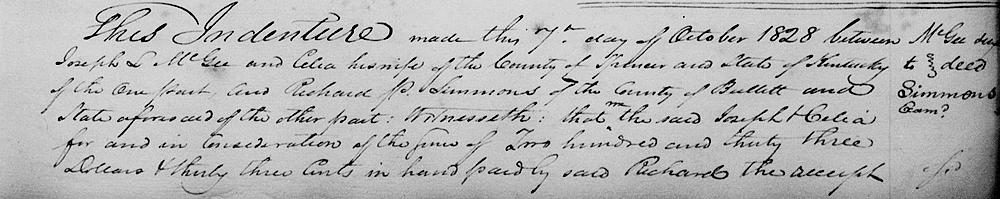 This Indenture made this 7th day of October 1828 between
Joseph L McGee and Celia his wife of the County of Spencer and State of Kentucky
of the one part, and Richard P. Simmons of the County of Bullitt and
State aforesaid of the other part: Witnesseth: that the said Joseph & Celia
for and in consideration of the sum of Two hundred and thirty three
Dollars & thirty three Cents in hand paid by said Richard the receipt
McGee
to } deed
Simmons
Exam?